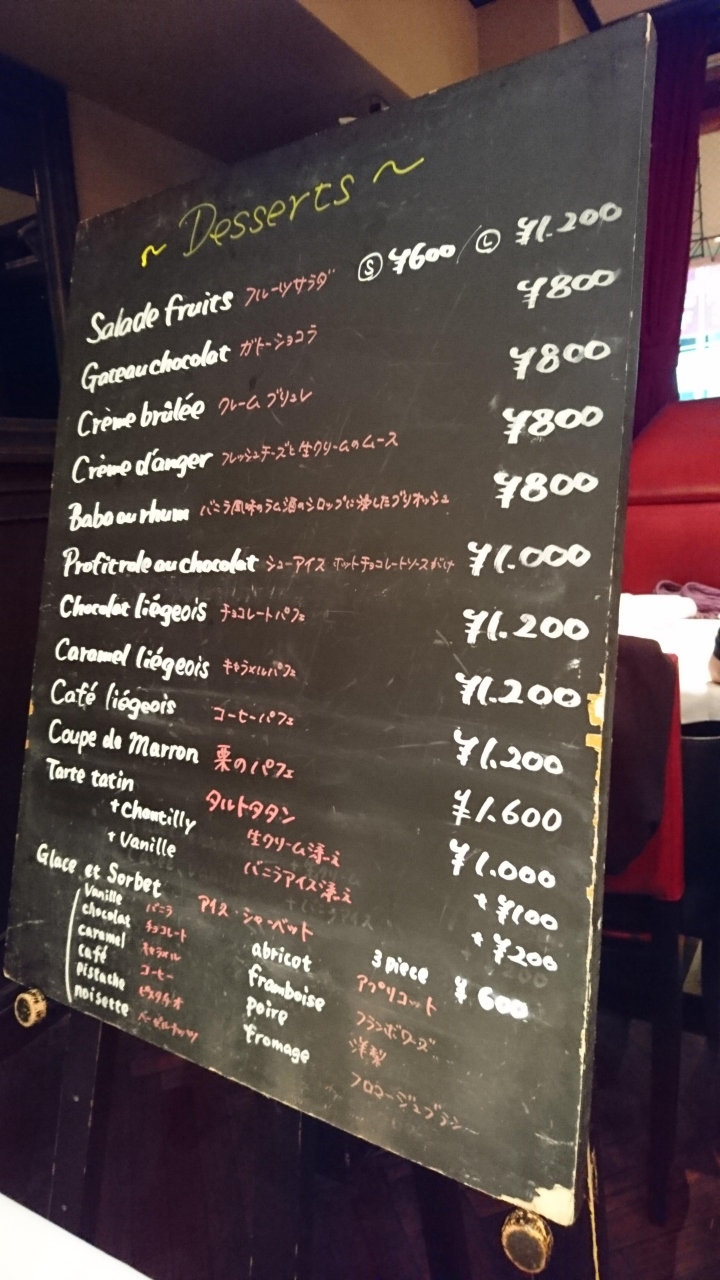 ~ Desserts ~
Salade fruits フルーツサラダ Ⓢ ¥600 / Ⓛ ¥1.200
Gateau chocolat ガトーショコラ ¥800
Crème brûlée クレーム ブリュレ ¥800
Crème d'anger フレッシュチーズと生クリームのムース ¥800
Baba ou rhum バニラ風味のラム酒のシロップに浸したブリオッシュ ¥800
Profitrole au chocolat シューアイス ホットチョコレートソースがけ ¥1.000
Chocolat liégeois チョコレートパフェ ¥1.200
Caramel liégeois キャラメルパフェ ¥1.200
Café liégeois コーヒーパフェ ¥1.200
Coupe de Marron 栗のパフェ ¥1.600
Tarte tatin タルトタタン ¥1.000
+ Chantilly 生クリーム添え + ¥100
+ Vanille バニラアイス添え + ¥200
Glace et Sorbet アイス・シャーベット 3 piece ¥600
Vanille バニラ
chocolat チョコレート
caramel キャラメル
café コーヒー
pistache ピスタチオ
noisette ヘーゼルナッツ
abricot アプリコット
framboise フランボワーズ
poire 洋梨
fromage フロマージュブラン